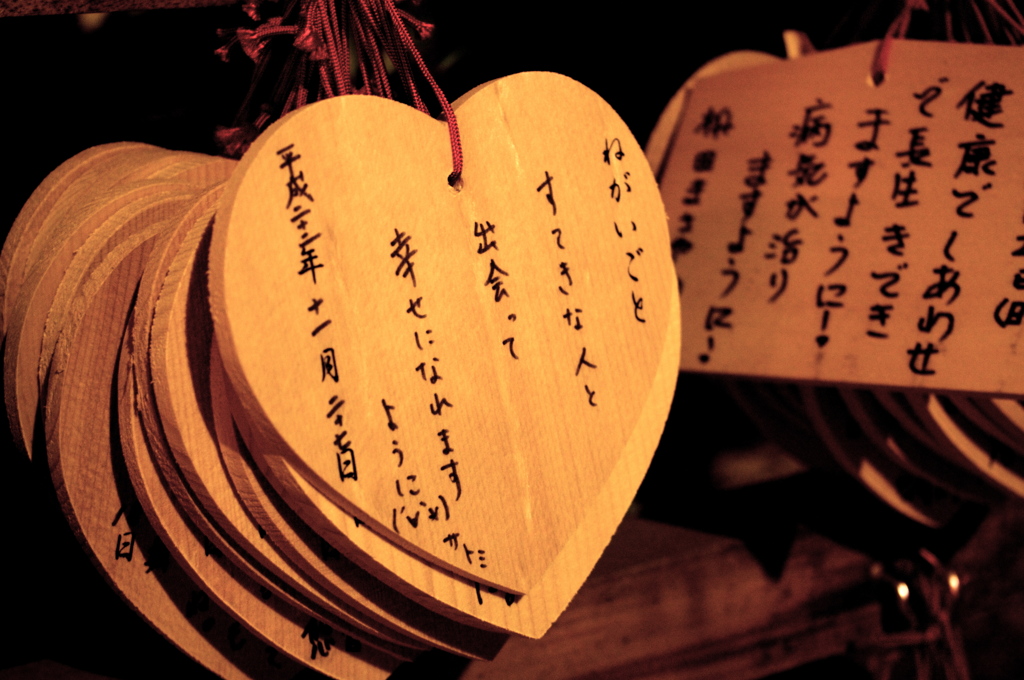 ねがいごと
すてきな人と
出会って
幸せになれます
ように
サトミ
平成二十二年十一月二十七日
健康でしあわせ
で長生きでき
ますように!
病気が治り
ますように!
日